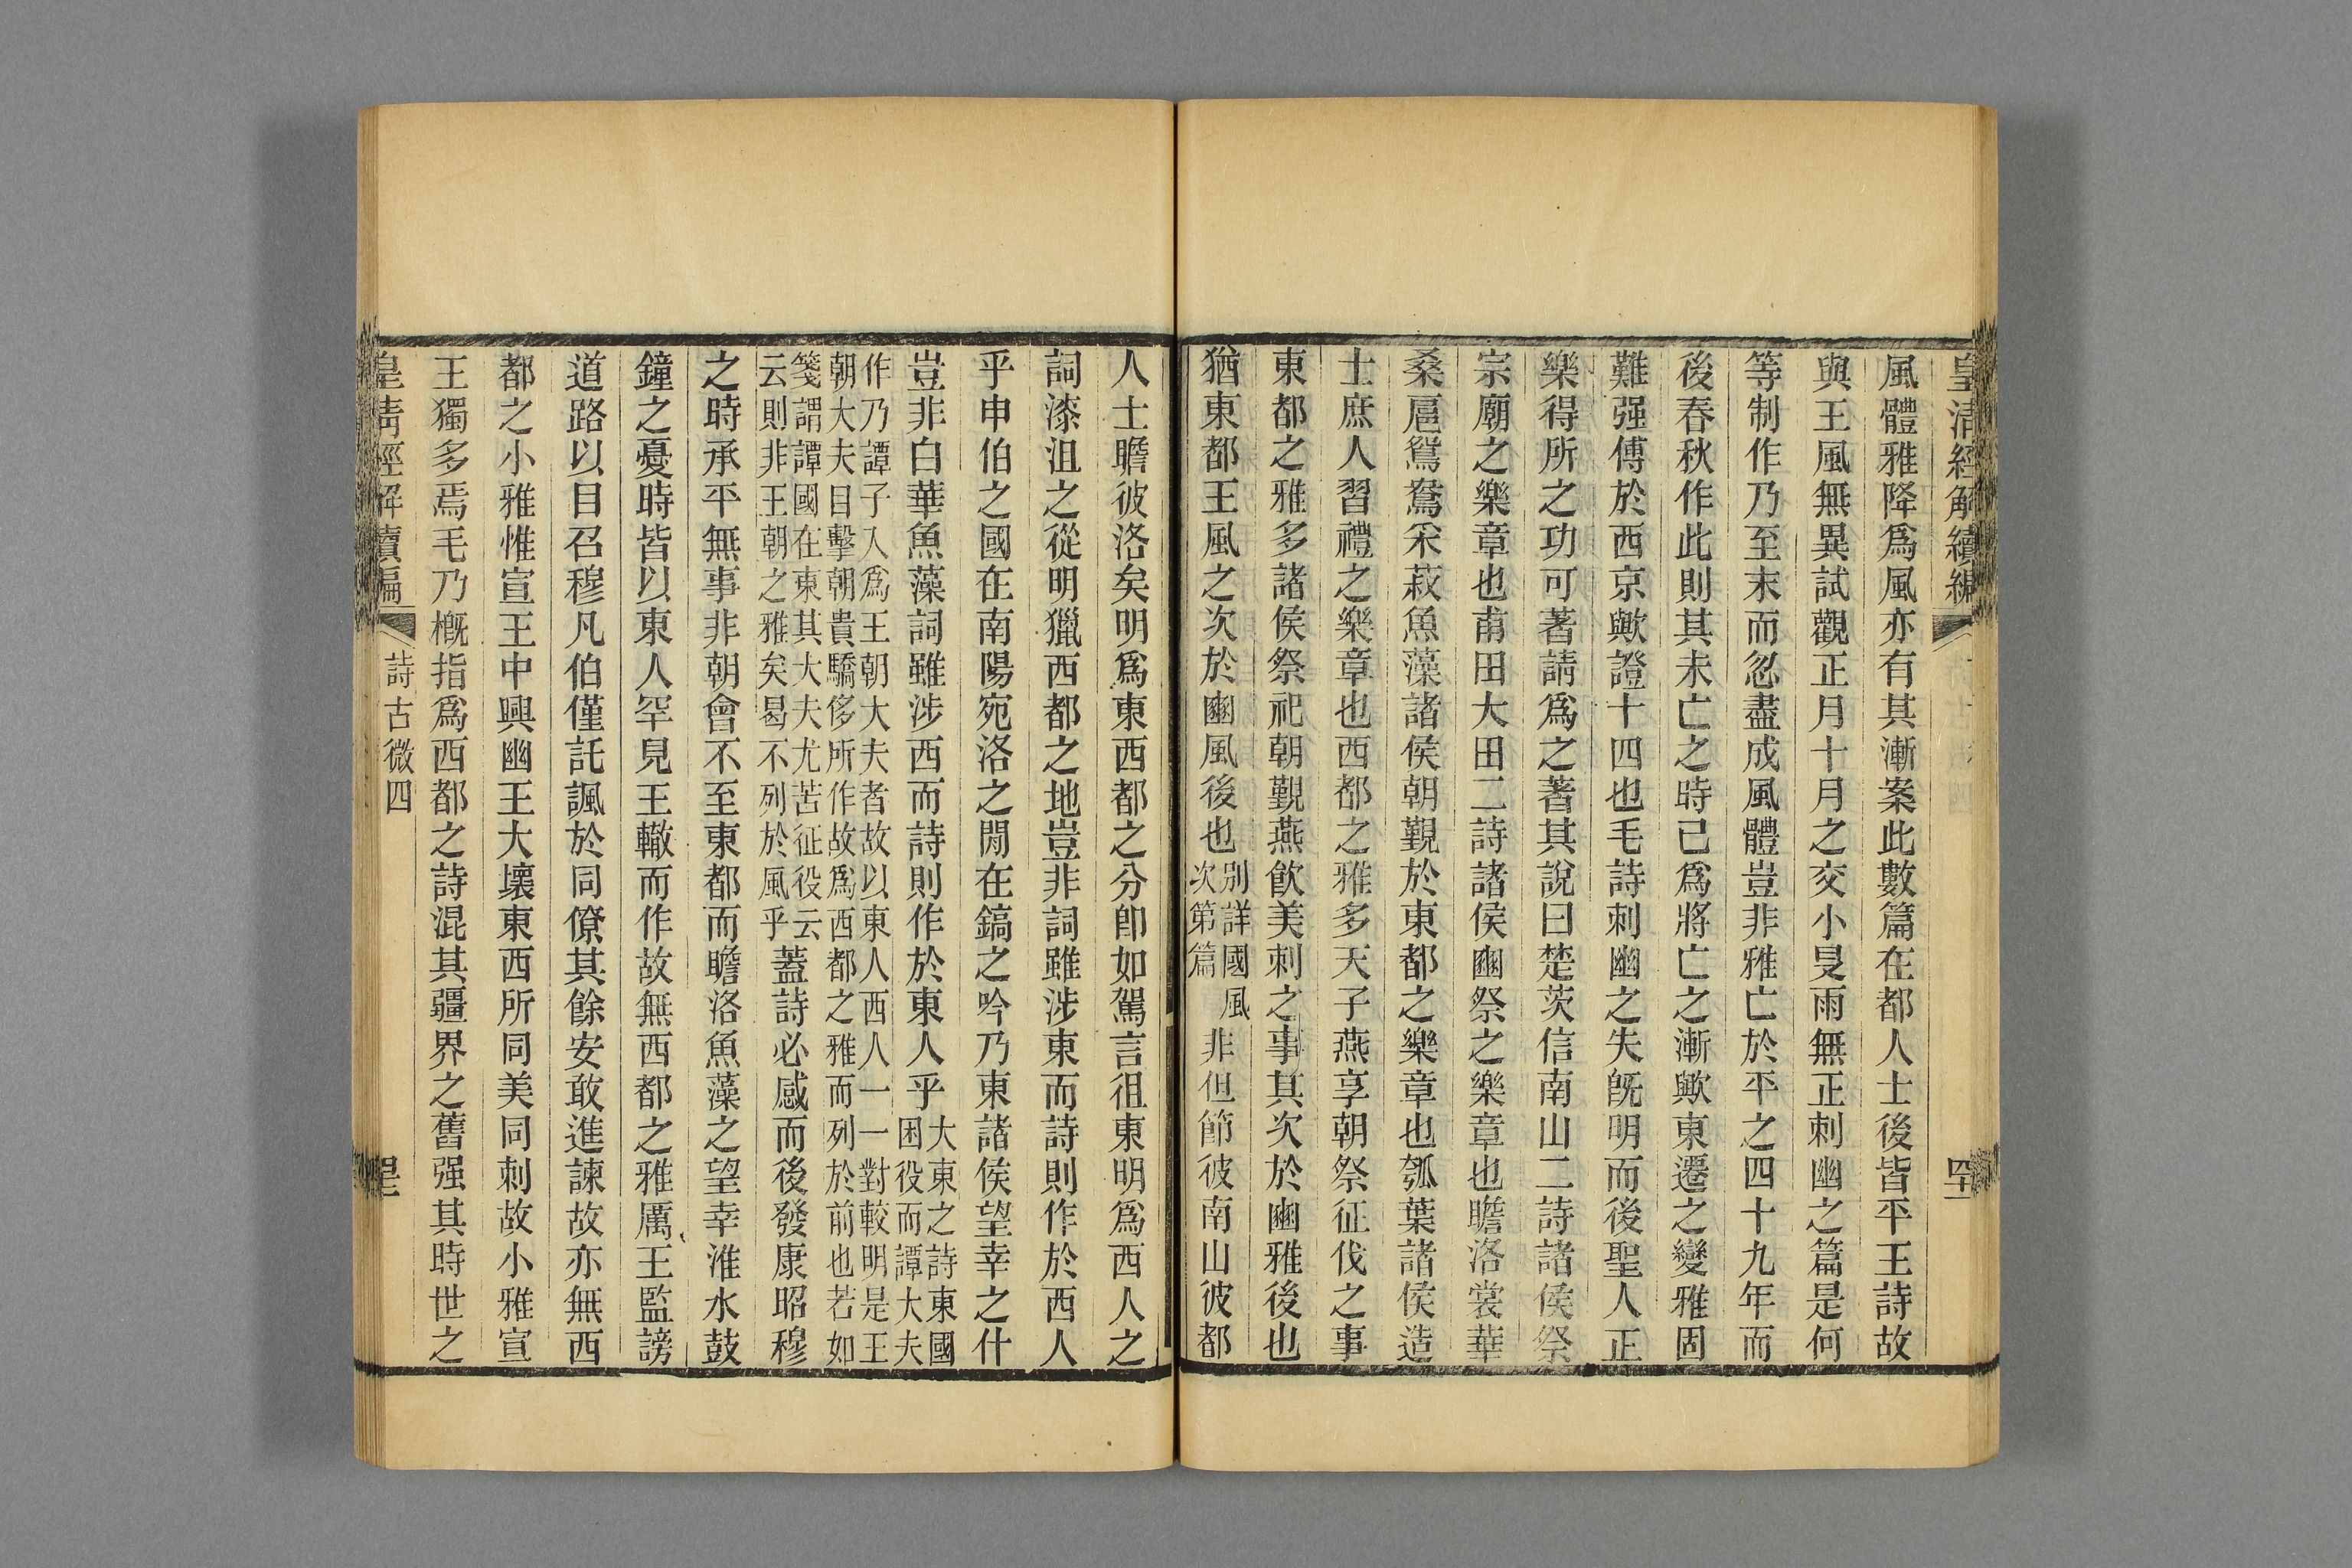 皇清經解續編
風體雅降爲風亦有其漸案此數篇在都人士後皆平王詩故
與王風無異試觀正月十月之交小旻雨無正刺幽之篇是何
等制作乃至末而忽盡成風體豈非雅亡於平之四十九年而
後春秋作此則其未亡之時已爲將亡之漸歟東遷之變雅固
難强傅於西京歟證十四也毛詩刺幽之失旣明而後聖人正
樂得所之功可著請爲之著其說曰楚茨信南山二詩諸侯祭
宗廟之樂章也甫田大田二詩諸侯豳祭之樂章也瞻洛裳華
桑扈鴛鴦采菽魚藻諸侯朝覲於東都之樂章也瓠葉諸侯造
士庶人習禮之樂章也西都之雅多天子燕享朝祭征伐之事
東都之雅多諸侯祭祀朝覲燕飲美刺之事其次於豳雅後也
猶東都王風之次於豳風後也別詳國風次第篇非但節彼南山彼都
人士瞻彼洛矣明爲東西都之分卽如駕言徂東明爲西人之
詞漆沮之從明獵西都之地豈非詞雖涉東而詩則作於西人
乎申伯之國在南陽宛洛之閒在鎬之吟乃東諸侯望幸之什
豈非白華魚藻詞雖涉西而詩則作於東人乎大東之詩東國困役而譚大夫
作乃譚子入爲王朝大夫者故以東人西人一一對較明是王
朝大夫目擊朝貴驕侈所作故爲西都之雅而列於前也若如
箋謂譚國在東其大夫尤苦征役云
云則非王朝之雅矣曷不列於風乎蓋詩必感而後發康昭穆
之時承平無事非朝會不至東都而瞻洛魚藻之望幸淮水鼓
鐘之憂時皆以東人罕見王轍而作故無西都之雅厲王監謗
道路以目召穆凡伯僅託諷於同僚其餘安敢進諫故亦無西
都之小雅惟宣王中興幽王大壞東西所同美同刺故小雅宣
王獨多焉毛乃槪指爲西都之詩混其疆界之舊强其時世之
皇清經解續編 詩古微四